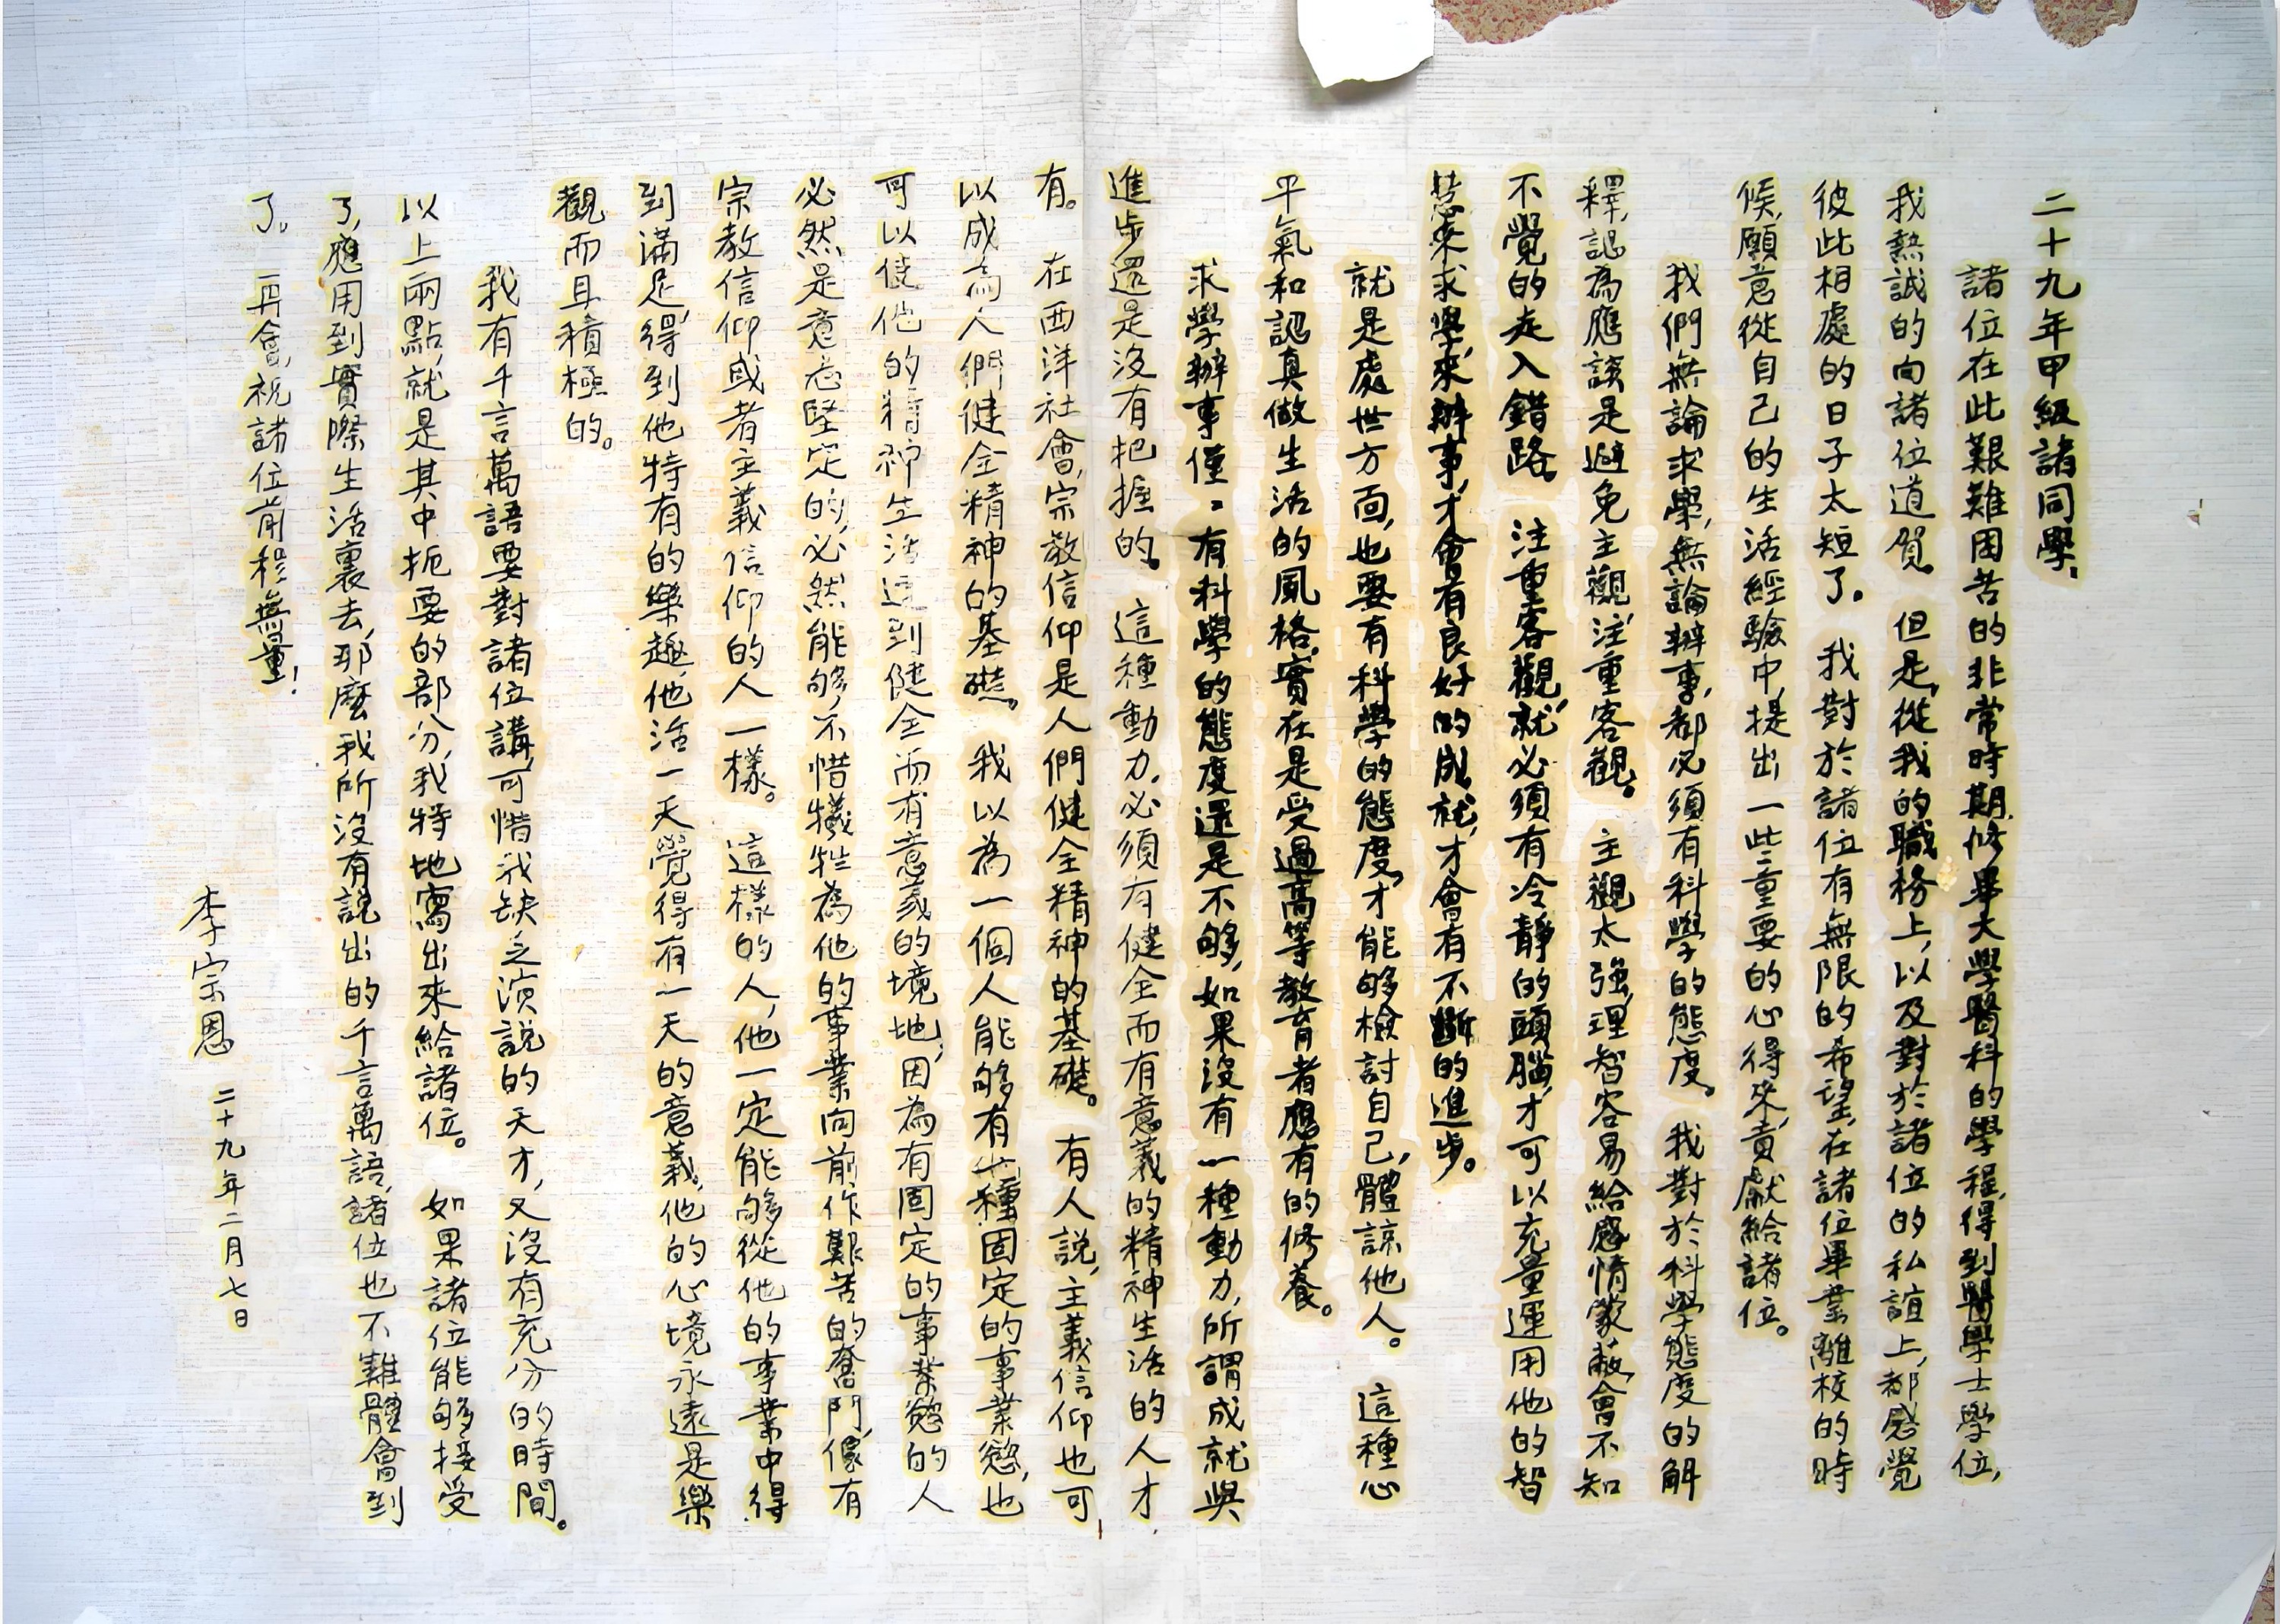 二十九年甲級諸同學、
諸位在此艱難困苦的非常時期，修畢大學醫科的學程，得到醫學士學位，
我熱誠的向諸位道賀。但是，從我的職務上，以及對於諸位的私誼上，都感覺
彼此相處的日子太短了。我對於諸位有無限的希望，在諸位畢業離校的時
候，願意從自己的生活經驗中，提出一些重要的心得來，貢獻給諸位。
我們無論求學，無論辦事，都必須有科學的態度。我對於科學態度的解
釋，認為應該是避免主觀，注重客觀。主觀太強，理智容易給感情蒙蔽，會不知
不覺的走入錯路。注重客觀，就必須有冷靜的頭腦，才可以充量運用他的智
慧來求學，來辦事，才會有良好的成就，才會有不斷的進步。
就是處世方面，也要有科學的態度，才能够檢討自己，體諒他人。這種心
平氣和認真做生活的風格，實在是受過高等教育者應有的修養。
求學辦事僅々有科學的態度還是不够，如果沒有一種動力，所謂成就與
進步還是沒有把握的。這種動力，必須有健全而有意義的精神生活的人才
有。在西洋社會，宗教信仰是人們健全精神的基礎。有人說，主義信仰也可
以成為人們健全精神的基礎。我以為一個人能够有一種固定的事業慾，也
可以使他的精神生活達到健全而有意義的境地，因為有固定的事業慾的人
必然是意志堅定的，必然能够不惜犧牲為他的事業向前作艱苦的奮鬥，像有
宗教信仰或者主義信仰的人一樣。這樣的人，他一定能够從他的事業中得
到滿足，得到他特有的樂趣，他活一天覺得有一天的意義，他的心境永遠是樂
觀而且積極的。
我有千言萬語要對諸位講，可惜我缺乏演說的天才，又沒有充分的時間。
以上兩點，就是其中扼要的部分，我特地寫出來給諸位。如果諸位能够接受
了，應用到實際生活裏去，那麼我所沒有說出的千言萬語，諸位也不難體會到
了。再會，祝諸位前程無量！
李宗恩 二十九年二月七日